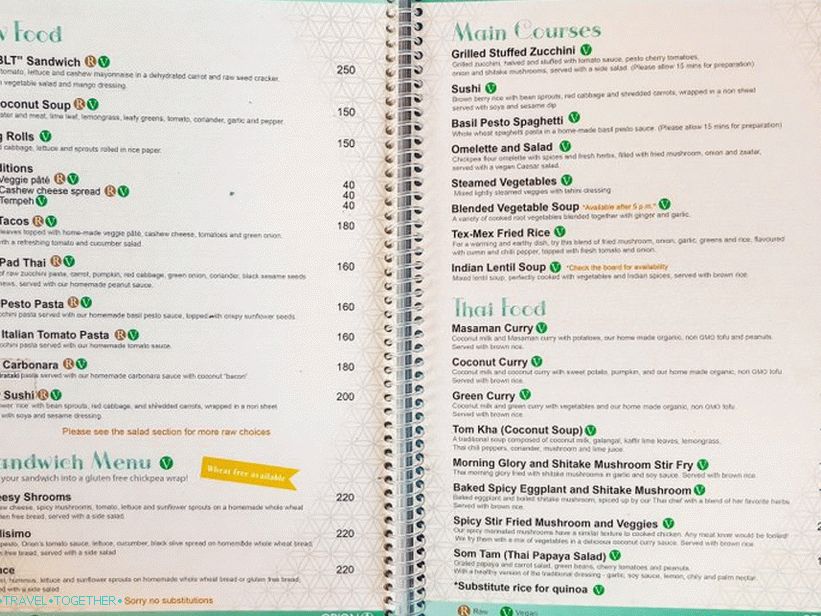 Food
BLT" Sandwich R V
tomato, lettuce and cashew mayonnaise in a dehydrated carrot and raw seed cracker. 250
vegetable salad and mango dressing.
oconut Soup R V
ater and meat, lime leaf, lemongrass, leafy greens, tomato, coriander, garlic and pepper. 150
g Rolls V 150
d cabbage, lettuce and sprouts rolled in rice paper.
ditions
Veggie pâté R V 40
Cashew cheese spread R V 40
Tempeh V 40
Tacos R V 180
leaves topped with home-made veggie pâté, cashew cheese, tomatoes and green onion.
with a refreshing tomato and cucumber salad.
Pad Thai R V 160
of raw zucchini pasta, carrot, pumpkin, red cabbage, green onion, coriander, black sesame seeds
hews, served with our homemade peanut sauce.
Pesto Pasta R V 160
cchini pasta served with our homemade basil pesto sauce, topped with crispy sunflower seeds.
Italian Tomato Pasta R V 160
cchini pasta served with our homemade tomato sauce.
Carbonara R V 180
irataki pasta served with our homemade carbonara sauce with coconut "bacon"
Sushi R V 200
ower 'rice' with bean sprouts, red cabbage, and shredded carrots, wrapped in a nori sheet
with soya and sesame dressing.
Please see the salad section for more raw choices
andwich Menu V
Wheat free available
your sandwich into a gluten free chickpea wrap!
eesy Shrooms 220
ew cheese, spicy mushrooms, tomato, lettuce and sunflower sprouts on a homemade whole wheat
ten free bread, served with a side salad.
lisimo 220
pesto, Orion's tomato sauce, lettuce, cucumber, black olive spread on homemade whole wheat bread,
n free bread, served with a side salad
ace 220
el, hummus, lettuce and sunflower sprouts on homemade whole wheat bread or gluten free bread,
with a side salad
Sorry no substitutions
•TRAVEL•TOGETHER•
ORION
Main Courses
Grilled Stuffed Zucchini V
Grilled zucchini, halved and stuffed with tomato sauce, pesto cherry tomatoes,
onion and shitake mushrooms, served with a side salad. (Please allow 15 mins for preparation)
Sushi V
Brown berry rice with bean sprouts, red cabbage and shredded carrots, wrapped in a nori sheet
served with soya and sesame dip
Basil Pesto Spaghetti V
Whole wheat spaghetti pasta in a home-made basil pesto sauce. (Please allow 15 mins for preparation)
Omelette and Salad V
Chickpea flour omelette with spices and fresh herbs, filled with fried mushroom, onion and zaatar,
served with a vegan Caesar salad.
Steamed Vegetables V
Mixed lightly steamed veggies with tahini dressing
Blended Vegetable Soup *Available after 5 p.m.* V
A variety of cooked root vegetables blended together with ginger and garlic.
Tex-Mex Fried Rice V
For a warming and earthy dish, try this blend of fried mushroom, onion, garlic, greens and rice, flavoured
with cumin and chili pepper, topped with fresh tomato and onion.
Indian Lentil Soup V *Check the board for availability
Mixed lentil soup, perfectly cooked with vegetables and Indian spices, served with brown rice.
Thai Food
Masaman Curry V
Coconut milk and Masaman curry with potatoes, our home made organic, non GMO tofu and peanuts.
Served with brown rice.
Coconut Curry V
Coconut milk and coconut curry with sweet potato, pumpkin, and our home made organic, non GMO tofu
Served with brown rice.
Green Curry V
Coconut milk and green curry with vegetables and our home made organic, non GMO tofu.
Served with brown rice.
Tom Kha (Coconut Soup) V
A traditional soup composed of coconut milk, galangal, kaffir lime leaves, lemongrass,
Thai chili peppers, coriander, mushroom and lime juice.
Morning Glory and Shitake Mushroom Stir Fry V
Thai morning glory fried with shitake mushrooms in garlic and soy sauce. Served with brown rice.
Baked Spicy Eggplant and Shitake Mushroom V
Baked eggplant and boiled shitake mushroom, spiced up by our Thai chef with a blend of her favorite herbs.
Served with brown rice.
Spicy Stir Fried Mushroom and Veggies V
Our spicy marinated mushrooms have a similar texture to cooked chicken. Any meat lover would be fooled!
We fry them with a mix of vegetables in a delicious coconut curry sauce. Served with brown rice.
Som Tam (Thai Papaya Salad) V
Grated papaya and carrot salad, green beans, cherry tomatoes and peanuts.
With a healthy version of the traditional dressing - garlic, soy sauce, lemon, chily and palm nectar.
*Substitute rice for quinoa V
R Raw V Vegan